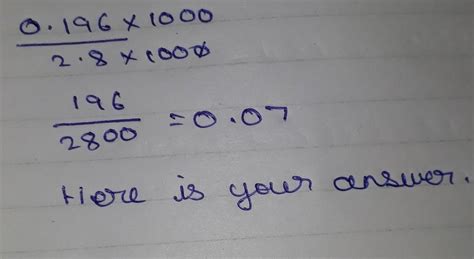 0.196 x 1000
2.8 x 1000
196
2800
= 0.07
Here is your answer.